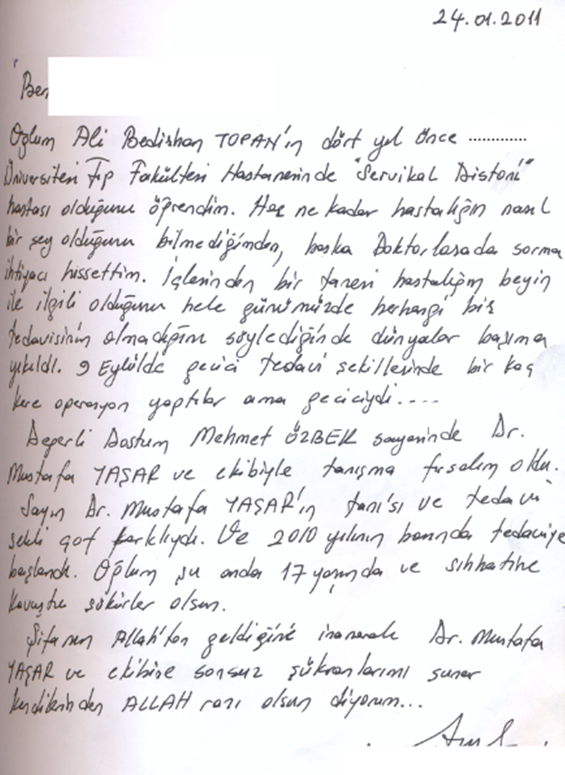 24.01.2011
Ben
Oğlum Ali Bedishan TOPAN'ın dört yıl önce ............
Üniversitesi Tıp Fakültesi Hastanesinde "Servikal Distoni"
hastası olduğunu öğrendim. Her ne kadar hastalığın nasıl
bir şey olduğunu bilmediğimden, başka Doktorlarada sorma
ihtiyacı hissettim. İçlerinden bir tanesi hastalığın beyin
ile ilgili olduğunu hele günümüzde herhangi bir
tedavisinin olmadığını söylediğinde dünyalar başıma
yıkıldı. 9 Eylülde geçici tedavi şekillerinde bir kaç
kere operasyon yaptılar ama geçiciydi....
Değerli Dostum Mehmet ÖZBEK sayesinde Dr.
Mustafa YAŞAR ve ekibiyle tanışma fırsatım oldu.
Sayın Dr. Mustafa YAŞAR'ın tanı'sı ve tedavi
şekli çok farklıydı. Ve 2010 yılının başında tedaviye
başlandı. Oğlum şu anda 17 yaşında ve sıhhatine
kavuştu şükürler olsun.
Şifanın Allah'tan geldiğine inanarak Dr. Mustafa
YAŞAR ve ekibine sonsuz şükranlarımı sunar
kendilerinden ALLAH razı olsun diyorum...